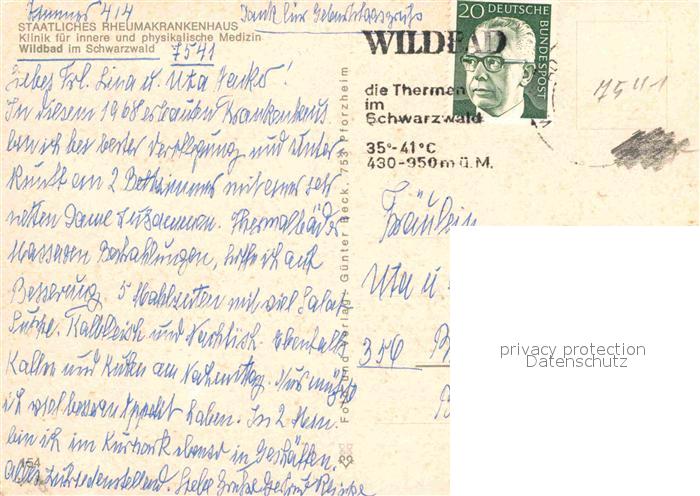 Zimmer 414
Dank für Geburtstagsgrüße
STAATLICHES RHEUMAKRANKENHAUS
Klinik für innere und physikalische Medizin
Wildbad im Schwarzwald
7541
Liebes Frl. Lina u. Uta
In diesem 1968 erbauten Krankenhaus
bin ich bei bester Verpflegung und Unter-
kunft am 2 Bettzimmer mit einer sehr
netten Dame zusammen. Thermalbäder
Massagen Bestrahlungen, hoffe ich auf
Besserung. 5 Mahlzeiten mit viel Salat
Suppe. Kalbfleisch und Nachtisch. Ebenfalls
Kaffee und Kuchen am Nachmittag. Nur müßte
ich viel bessern Appetit haben. In 2 Min.
bin ich im Kurpark ebenso in Geschäften.
Alles zufriedenstellend. Liebe Grüße
154
Foto und Verlag: Günter Beck, 753 Pforzheim
WILDBAD
die Thermen
im
Schwarzwald
35°-41°C
430-950m ü.M.
20
DEUTSCHE
BUNDESPOST
7541
Fräulein
Uta u
356 B
privacy protection
Datenschutz